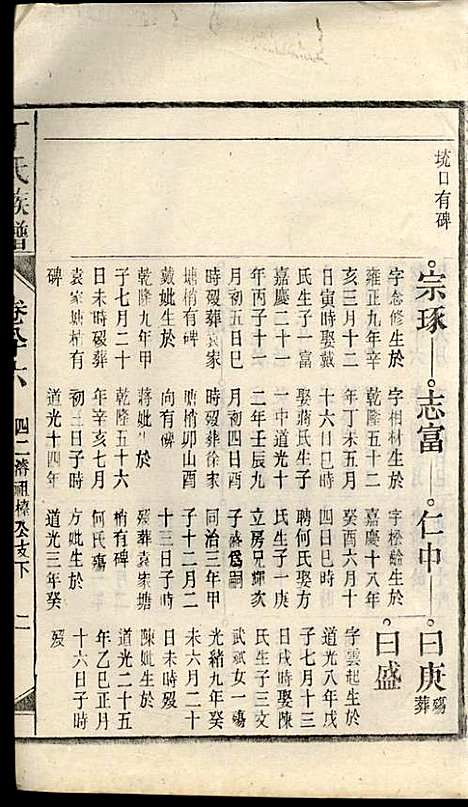 塆口有碑
宗琢
字念修生於
雍正九年辛
亥三月十二
日寅時娶戴
氏生子一富
嘉慶二十一
年丙子十一
月初五日巳
時歿葬袁家
塘梢有碑
戴妣生於
乾隆九年甲
子七月二十
日未時歿葬
袁家塘梢有
碑
志富
字相材生於
乾隆五十二
年丁未五月
十六日巳時
娶蔣氏生子
一中道光十
二年壬辰九
月初四日酉
時歿葬徐家
塘梢卯山酉
向有碑
蔣妣生於
乾隆五十六
年辛亥七月
初三日子時
道光十四年
仁中
字松齡生於
嘉慶十八年
癸酉六月十
四日巳時
聘何氏娶方
氏生子一庚
立房兄輝次
子盛為嗣
同治三年甲
子十二月二
十三日子時
歿葬袁家塘
梢有碑
何氏殤
方妣生於
道光三年癸
曰庚
殤葬
曰盛
字雲起生於
道光八年戊
子七月十三
日戌時娶陳
氏生子三文
武斌女一殤
光緒九年癸
未六月二十
日未時歿
陳妣生於
道光二十五
年乙巳正月
十六日子時
歿
丁氏族譜
卷六
四二濟祖棟公支下
二